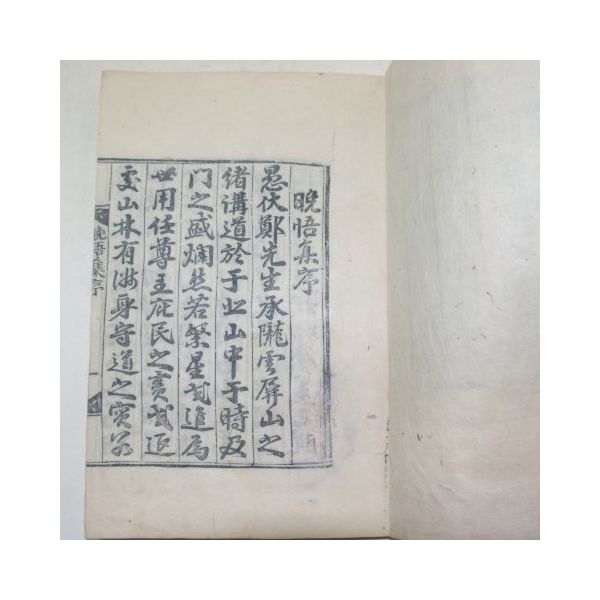 晩悟集序
愚伏鄭先生承隴雲屛山之
緖講道於于北山中于時及
門之盛爛然若繁星或進為
世用任尊主庇民之責或退
處山林有淑身守道之實若
晩悟集序